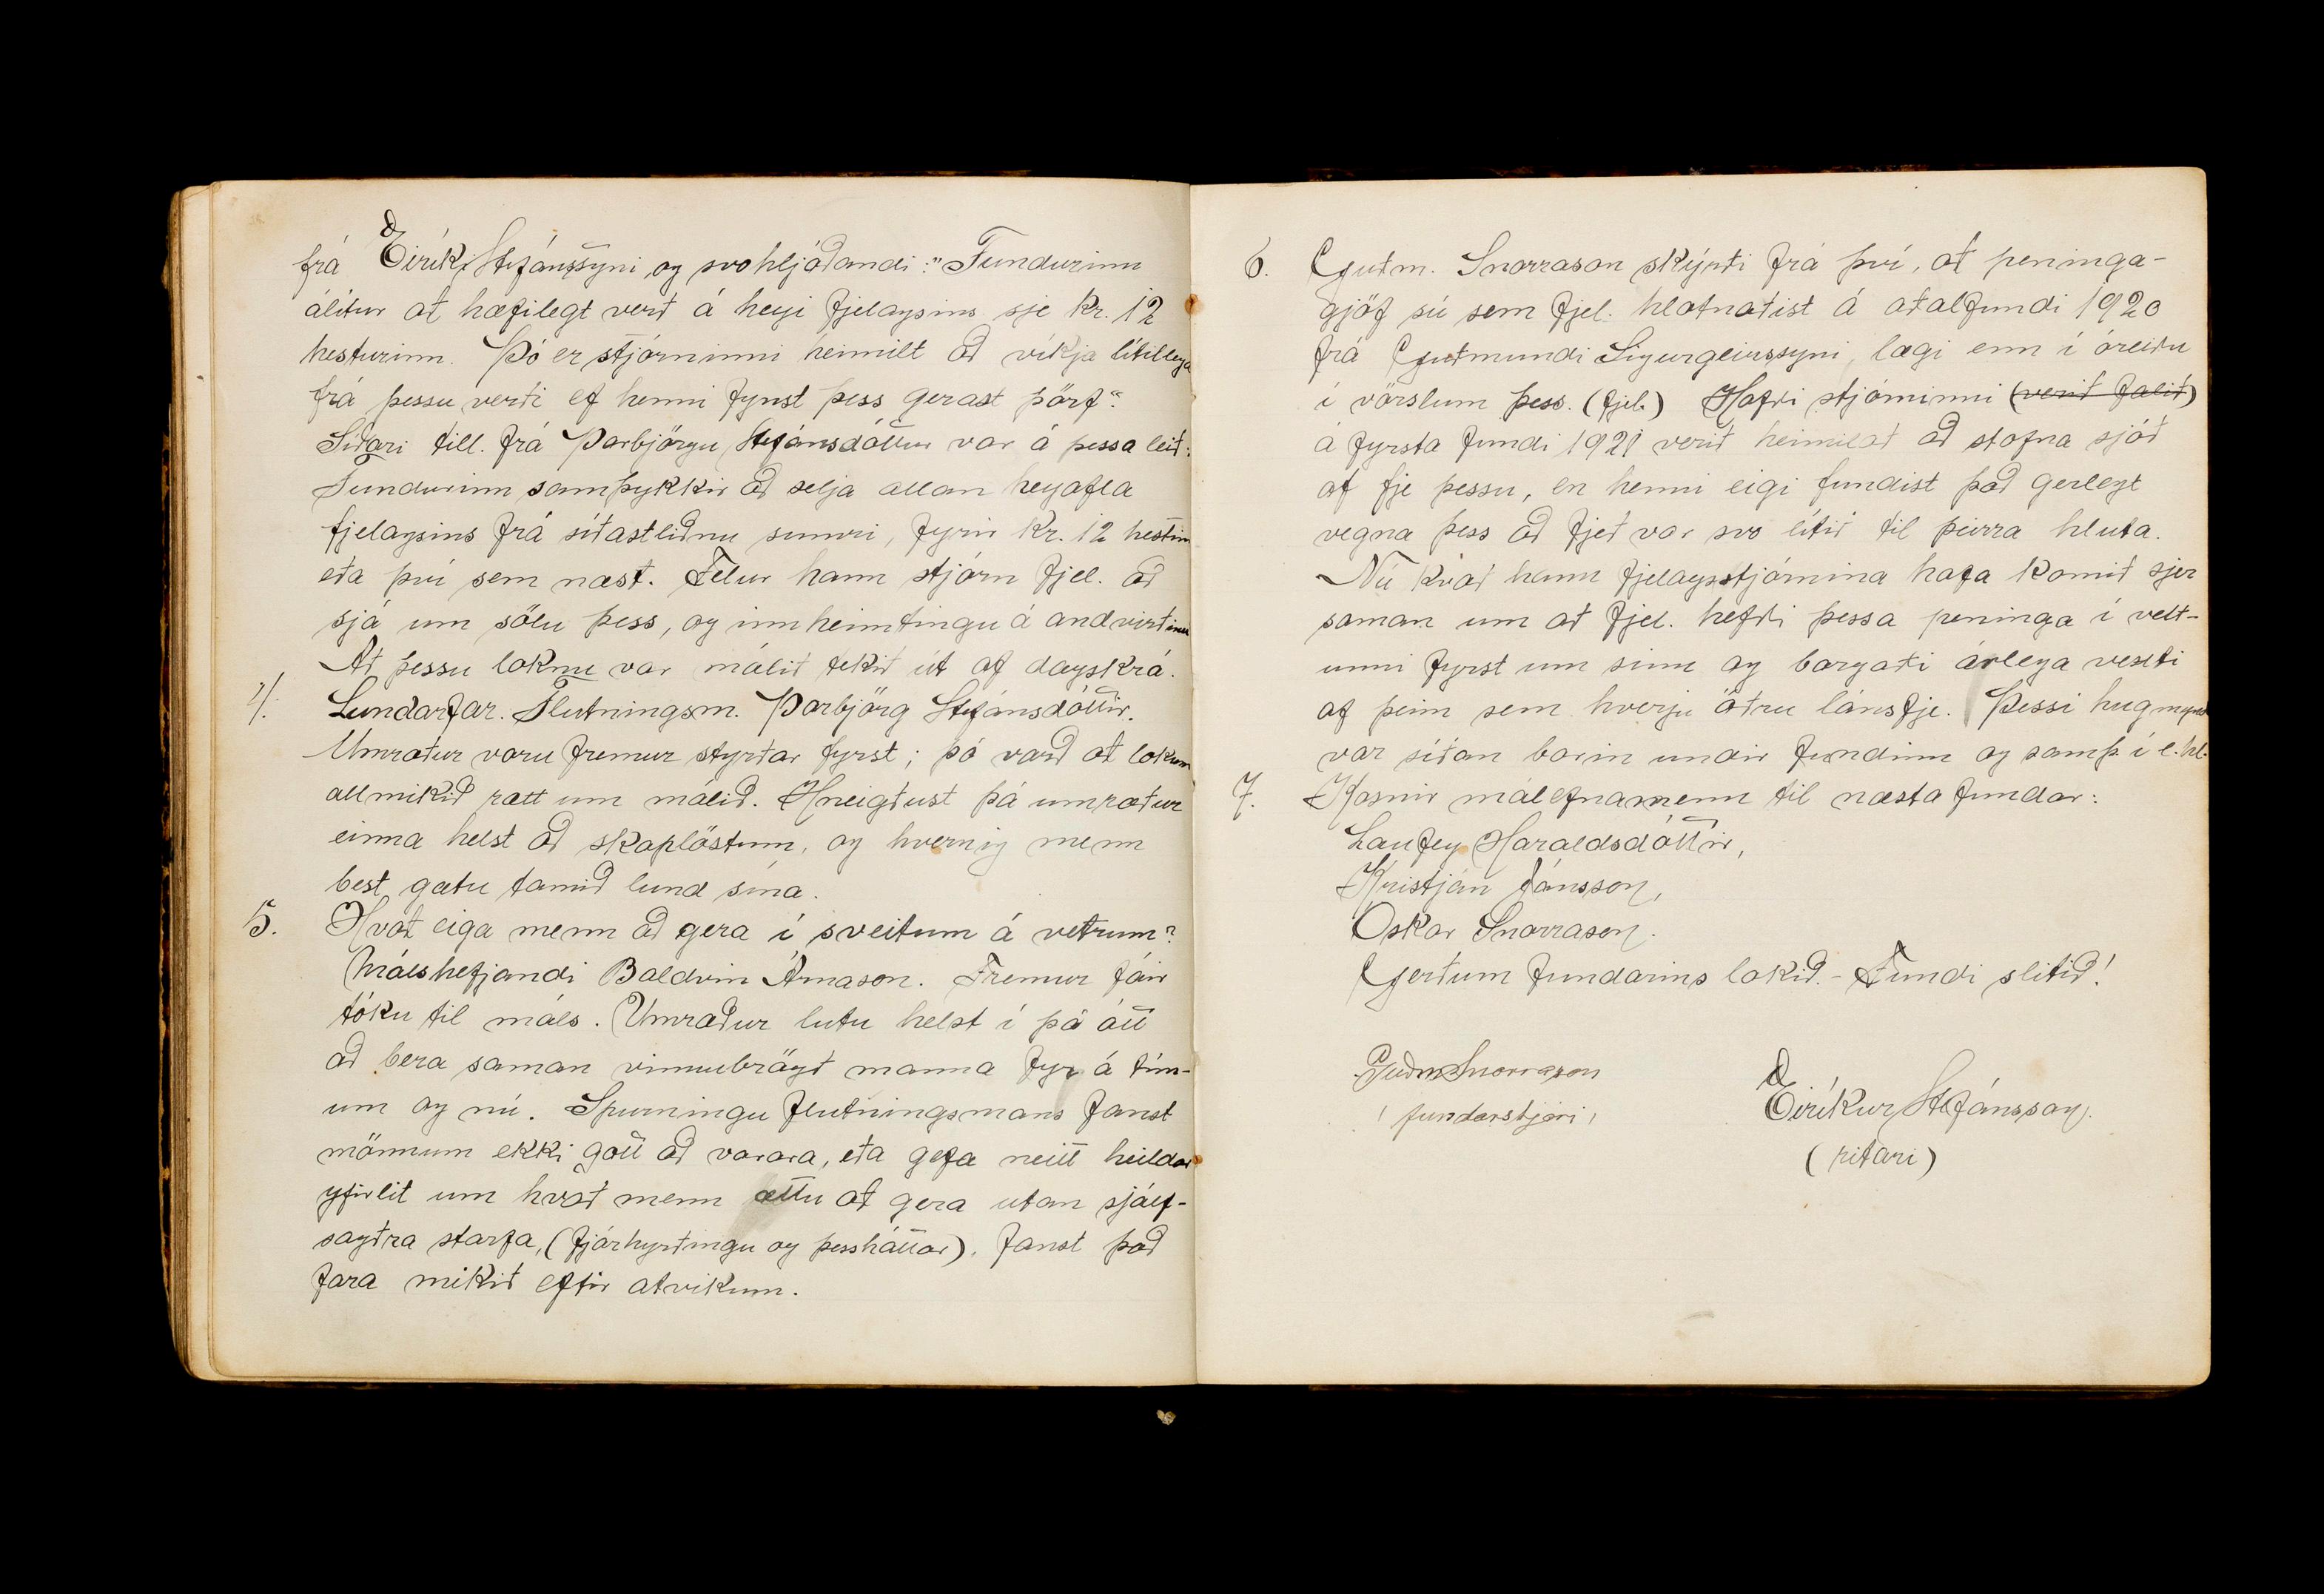 frá Eiríki Stefánssyni og svohljóðandi: "Fundurinn
álítur að hæfilegt verð á heyi fjelagsins sje Kr. 12
hesturinn. Þó er stjórninni heimilt að víkja lítillega
frá þessu verði ef henni fynst þess gerast þörf".
Síðari till. frá Þorbjörgu Stefánsdóttur var á þessa leið:
Fundurinn samþykkir að selja allan heyafla
fjelagsins frá síðastliðnu sumri, fyrir Kr. 12 hestinn
eða því sem næst. Felur hann stjórn fjel. að
sjá um sölu þess, og innheimtingu á andvirðinu
Að þessu loknu var málið tekið út af dagskrá.
4. Lundarfar. Flutningsm. Þorbjörg Stefánsdóttir.
Umræður voru fremur styrðar fyrst; þó varð að lokum
allmikið rætt um málið. Hneigðust þá umræður
einna helst að skaplöstum, og hvernig menn
best gætu tamið lund sína.
5. Hvað eiga menn að gera í sveitum á vetrum?
Málshefjandi Baldvin Árnason. Fremur fáir
tóku til máls. Umræður lutu helst í þá átt
að bera saman vinnubrögð manna fyr á tím-
um og nú. Spurningu flutningsmans fanst
mönnum ekki gott að svara, eða gefa neitt heildar
yfirlit um hvað menn ættu að gera utan sjálf-
sagðra starfa, (fjárhyrðingu og þessháttar). Fanst það
fara mikið eftir atvikum.
6. Guðm. Snorrason skýrði frá því, að peninga-
gjöf sú sem fjel. hlotnaðist á aðalfundi 1920
frá Guðmundi Sigurgeirssyni, lægi enn í óreiðu
í vörslum þess. (fjel.) Hafði stjórninni (verið falið)
á fyrsta fundi 1921 verið heimilað að stofna sjóð
af fje þessu, en henni eigi fundist það gerlegt
vegna þess að fjeð var svo lítið til þeirra hluta.
Nú kvað hann fjelagsstjórnina hafa komið sjer
saman um að fjel. hefði þessa peninga í velt-
unni fyrst um sinn og borgaði árlega vexti
af þeim sem hverju öðru lánsfje. Þessi hugmynd
var síðan borin undir fundinn og samþ. í e. hl.
7. Kosnir málefnamenn til næsta fundar:
Laufey Haraldsdóttir,
Kristján Jónsson,
Óskar Snorrason.
Gerðum fundarins lokið. - Fundi slitið!
Guðm Snorrason
(fundarstjóri)
Eiríkur Stefánsson.
(ritari)